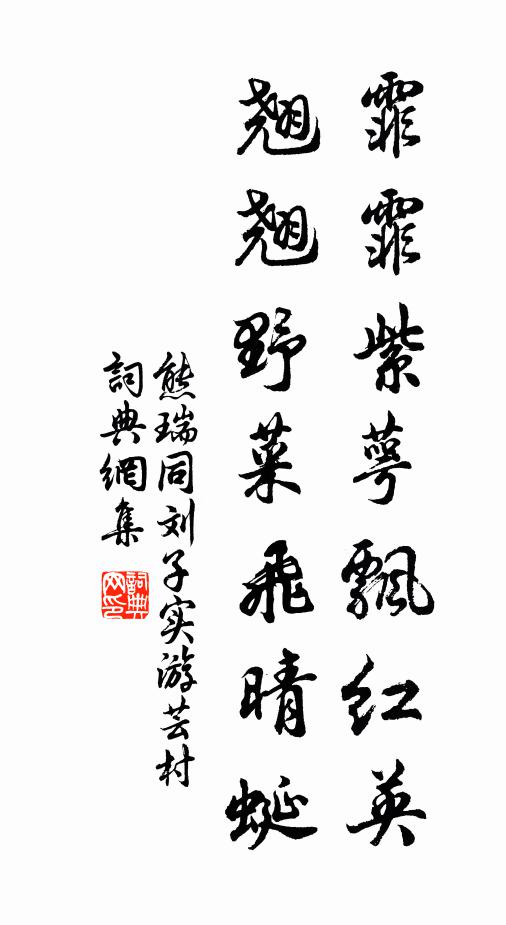 霏霏紫萼飄红英
翹翹野菜飛晴蜒
熊瑞同刘子实游芸村
詞典網集
詞典网印